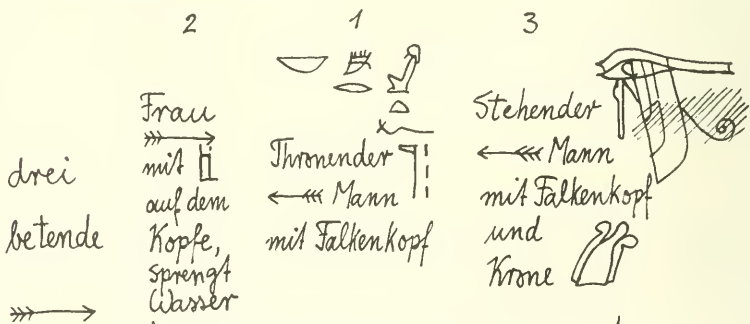 2 1 3
drei
betende
Frau
mit
auf dem
Kopfe,
sprengt
Wasser
Thronender
Mann
mit Falkenkopf
Stehender
Mann
mit Falkenkopf
und
Krone